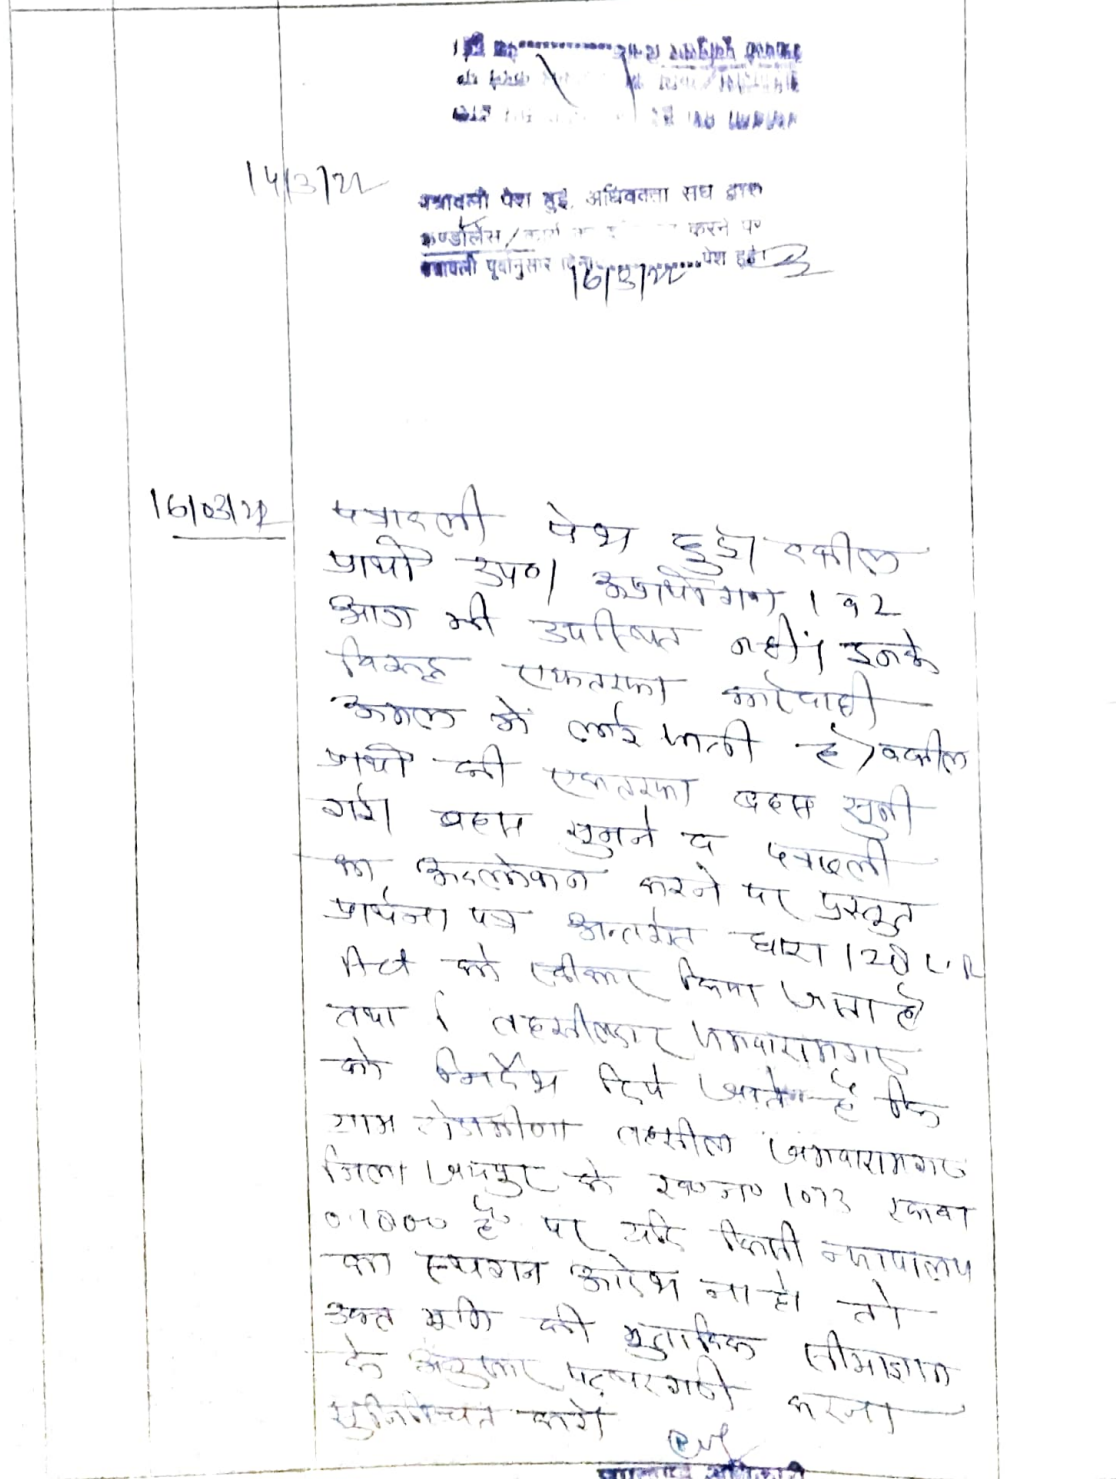 14/3/22
पत्रावली पेश हुई. अधिवक्ता संघ द्वारा
कण्डोलेंस/ करने पर
पत्रावली पूर्वानुसार दिनां 16/3/22 पेश हुई।
16/03/22
पत्रावली पेश हुई। वकील
प्रार्थी उप०। अप्रार्थीगण 1 व 2
आज भी उपस्थित नहीं। इनके
विरूद्ध एकतरफा कार्यवाही
अमल में लाई जाती है। वकील
प्रार्थी की एकतरफा बहस सुनी
गई। बहस सुनने व पत्रावली
का अवलोकन करने पर प्रस्तुत
प्रार्थना पत्र अन्तर्गत धारा 128 L.R
Act को स्वीकार किया जाता है
तथा तहसीलदार जमवारामगढ
को निर्देश दिये जाते है कि
ग्राम तहसील जमवारामगढ
जिला जयपुर के ख०न० 1073 रकबा
0.1000 है० पर यदि किसी न्यायालय
का स्थगन आदेश ना हो तो
उक्त भूमि की मुताबिक सीमाज्ञान
के अनुसार पत्थरगढी करना
सुनिश्चित करे।